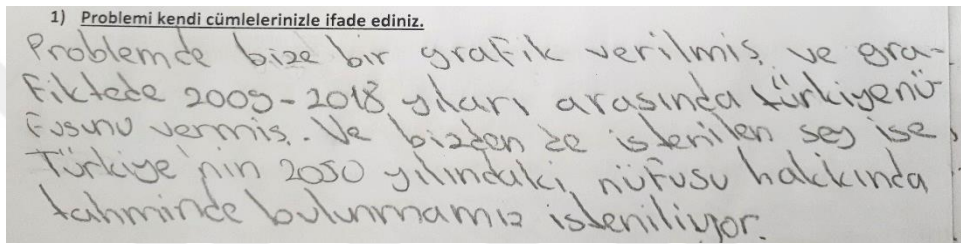 1) Problemi kendi cümlelerinizle ifade ediniz.
Problemde bize bir grafik verilmiş ve gra-
fiktede 2009-2018 yılları arasında türkiyenü-
fusunu vermiş. Ve bizden de istenilen şey ise
Türkiye'nin 2050 yılındaki nüfusu hakkında
tahminde bulunmamız isteniliyor.